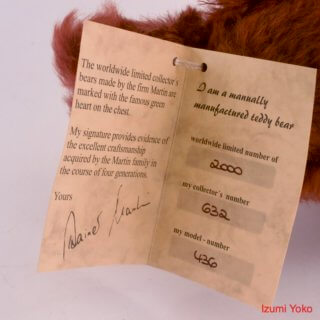 The worldwide limited collector's
bears made by the firm Martin are
marked with the famous green
heart on the chest.
My signature provides evidence of
the excellent craftsmanship
acquired by the Martin family in
the course of four generations.
Yours
Martin
I am a manually
manufactured teddy bear
worldwide limited number of
2000
my collector's number
632
my model - number
436
Izumi Yoko